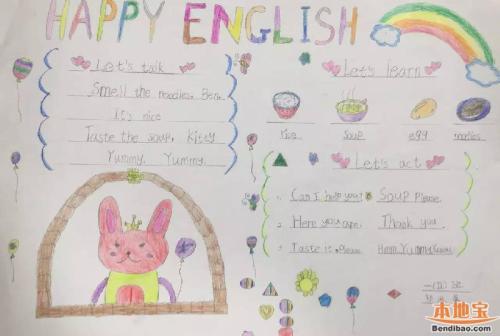 HAPPY ENGLISH
Let's talk
Smell the noodles, Ben.
It's nice
Taste the soup, Kitty
Yummy. Yummy.
Let's learn
rice soup egg noodles
Let's act
1. Can I help you? Soup Please.
2. Here you are. Thank you.
3. Taste it, Please. Hmm. Yummy
一(四)班
本地宝
Bendibao.com